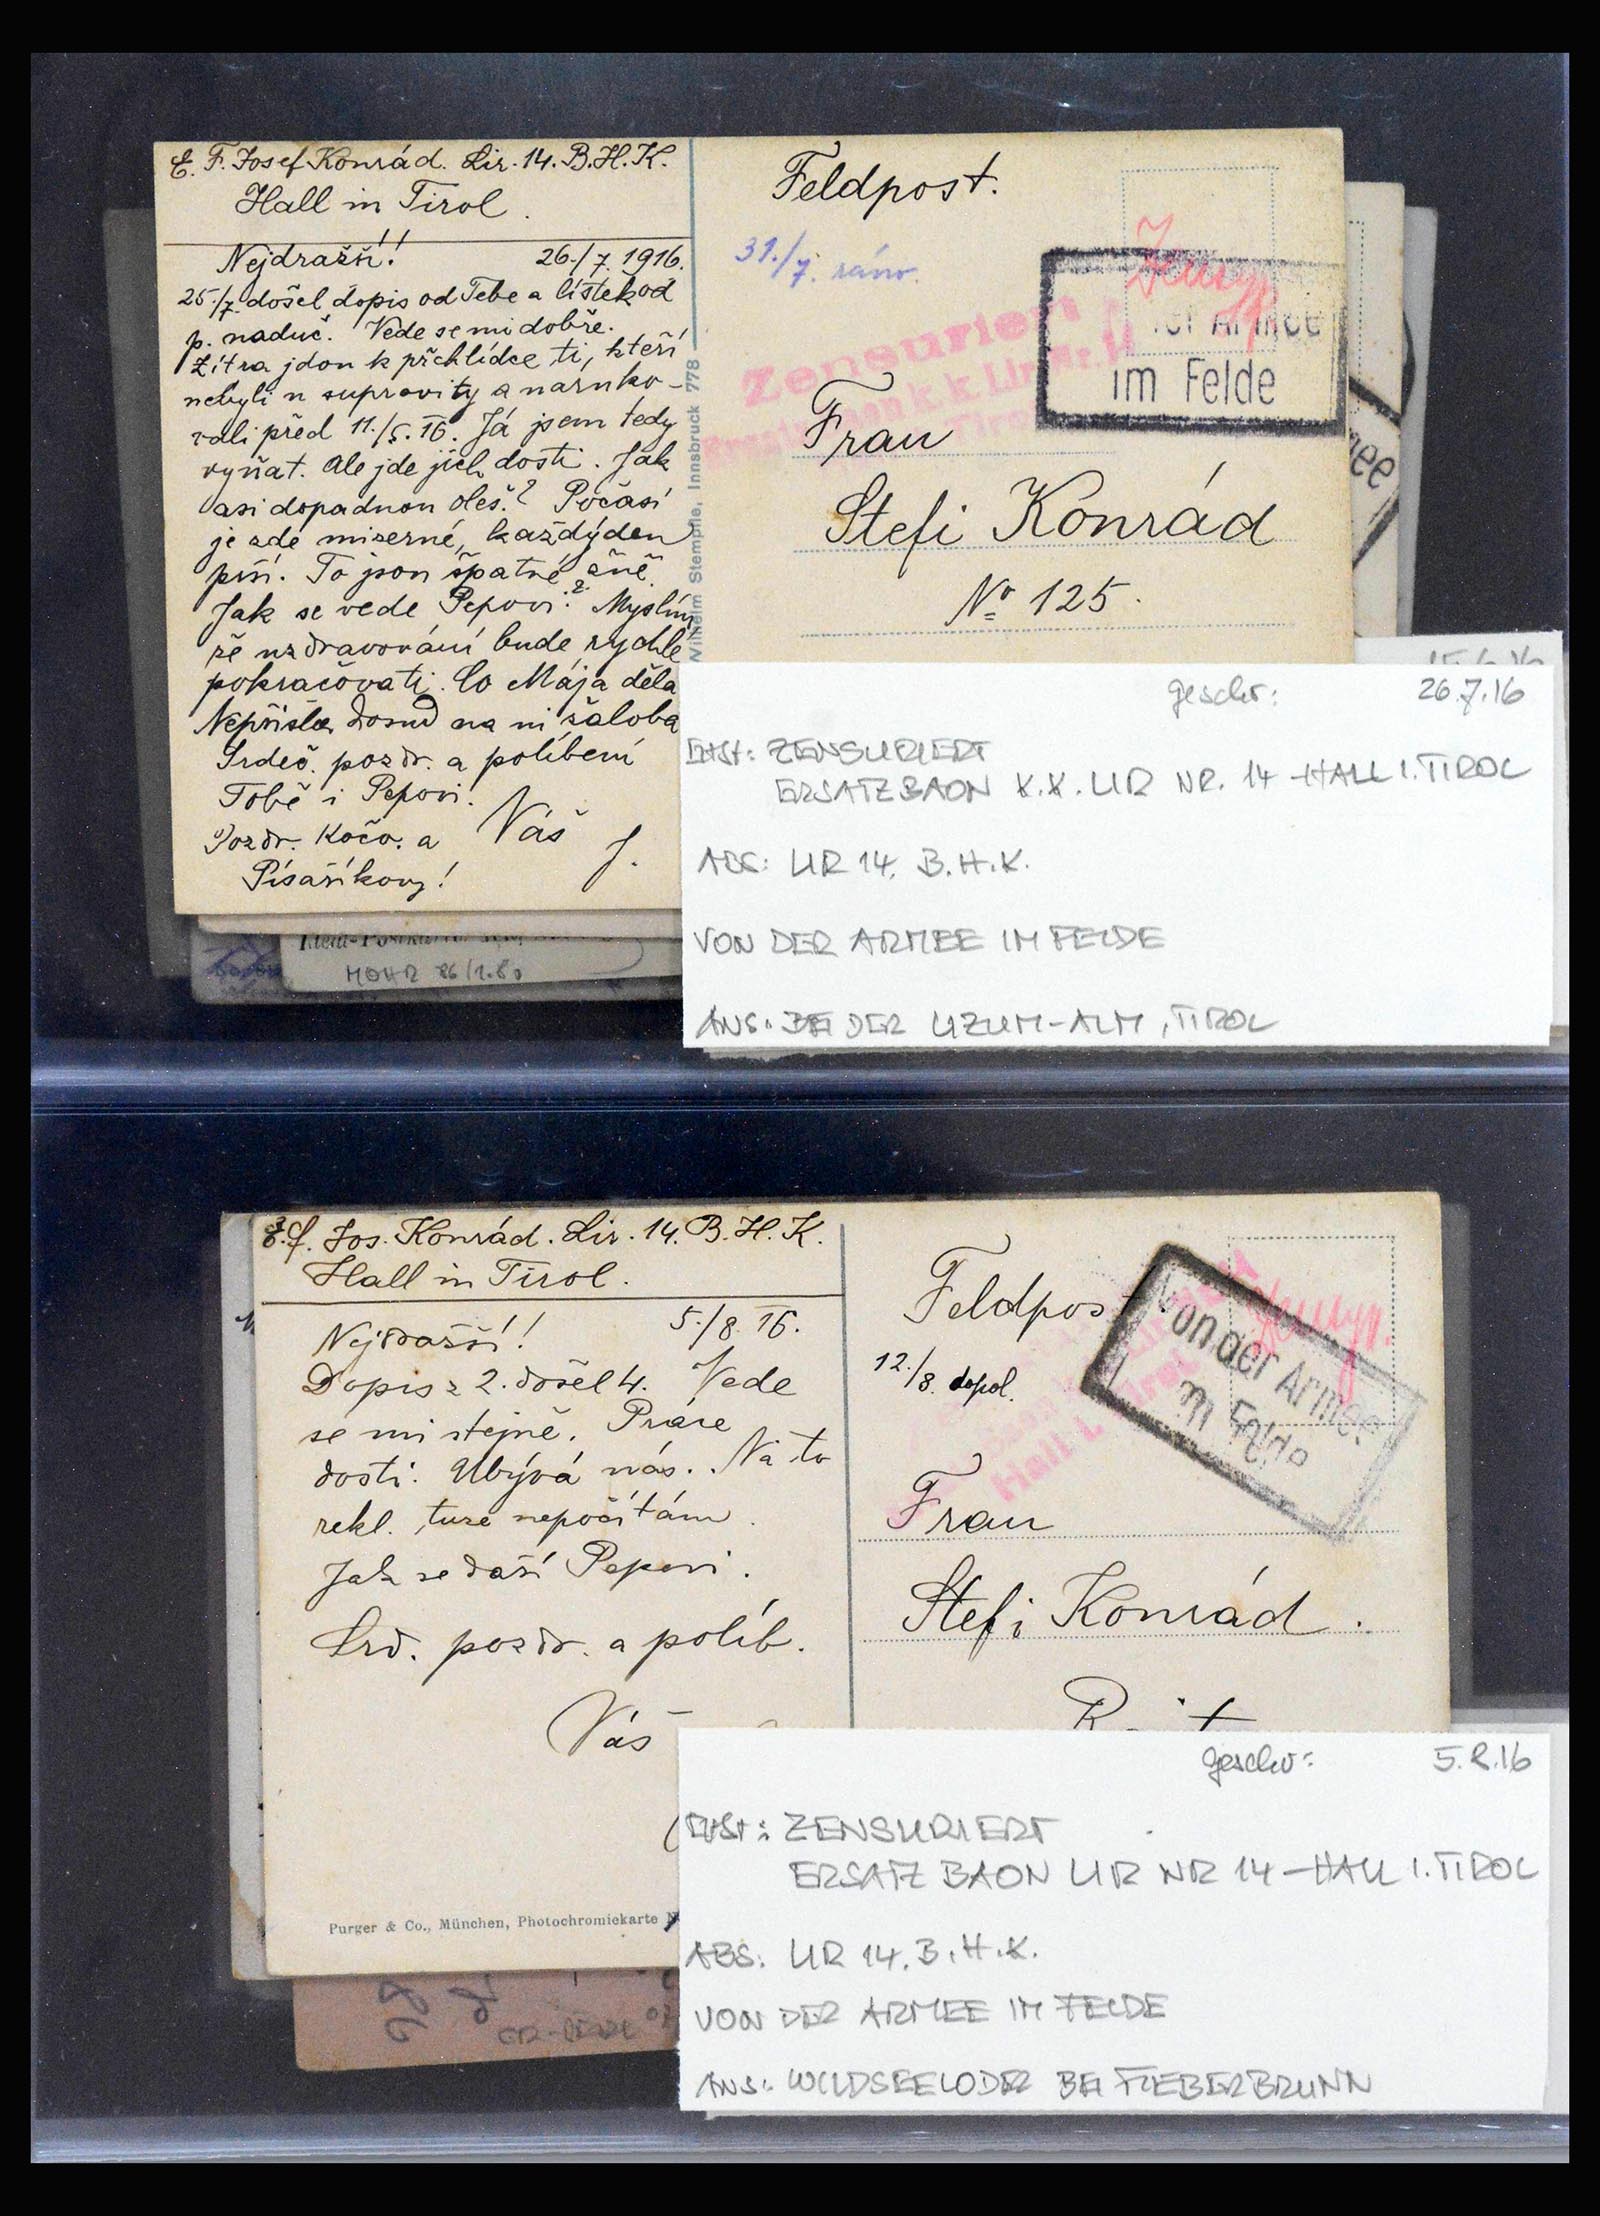 E. F. Josef Konrád. Lir. 14. B.H.K.
Hall in Tirol.
Nejdražší! 26./7. 1916.
25./7. došel dopis od Tebe a lístek od
p. naduč. Vede se mi dobře.
Zítra jdou k přehlídce ti, kteří
nebyli u supravity a naruko-
vali před 11./5. 16. Já jsem tedy
vyňat. Ale jde jich dosti. Jak
asi dopadnou oleš.? Počasí
je zde miserné, každý den
prší. To jsou špatné žně.
Jak se vede Pepovi? Myslím,
že uzdravování bude rychle
pokračovati. Co Mája dělá
Nepřišla dosud na ni žaloba
Srdeč. pozdr. a políbení
Tobě i Pepovi.
Pozdr. Kočo. a Váš J.
Písaříkovy!
Wilhelm Stempfle, Innsbruck 778
Feldpost.
31./7. ráno.
Zensuriert
k. k. Lir
der Armee
im Felde
Frau
Stefi Konrád
No 125.
mee
geschr: 26.7.16
ZENSURIERT
ERSATZBAON K.K. LIR NR. 14 - HALL I. TIROL
ABS: LIR 14. B.H.K.
VON DER ARMEE IM FELDE
ANS: BEI DER LIZUM-ALM, TIROL
MOHR 86/1.80
E. f. Jos. Konrád. Lir. 14. B. H. K.
Hall in Tirol.
Nejdražší! 5./8. 16.
Dopis z 2. došel 4. Vede
se mi stejně. Práce
dosti. Ubývá nás. Na to
rekl. tuze nepočítám.
Jak se daří Pepovi.
Srd. pozdr. a políb.
Váš
Purger & Co., München, Photochromiekarte
Feldpost
12./8. dopol.
Hall i. Tirol
Von der Armee
im Felde
Frau
Stefi Konrád.
geschr: 5.8.16
ZENSURIERT
ERSATZ BAON LIR NR 14 - HALL I. TIROL
ABS: LIR 14. B.H.K.
VON DER ARMEE IM FELDE
ANS: WILDSEELODER BEI FIEBERBRUNN